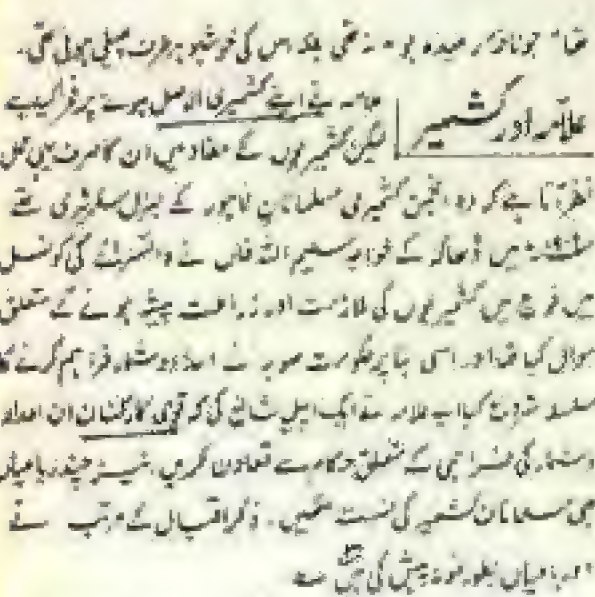 تھا" جو نادر، عمدہ ہو۔ نہ تھی بلکہ اس کی خوشبو ہر طرف پھیلی ہوئی تھی۔
علامہ اور کشمیر
علامہ نے اپنے کشمیری الاصل ہونے پر فخر کیا ہے
لیکن کشمیریوں کے مفاد میں ان کا صرف یہی عمل
نظر آتا ہے کہ وہ انجمن کشمیری مسلمانان لاہور کے جنرل سیکرٹری تھے
میں ڈھاکہ کے خواجہ سلیم اللہ خاں نے وائسرائے کی کونسل
میں فوج میں کشمیریوں کی ملازمت اور زراعت پیشہ ہونے کے متعلق
سوال کیا تھا اور اسی بنا پر حکومت صوبہ نے اعداد و شمار فراہم کرنے کا
سلسلہ شروع کیا اب علامہ نے ایک اپیل شائع کی کہ قومی کارکنان ان اعداد
و شمار کی فراہمی کے متعلق حکام سے تعاون کریں، نیز چند رباعیاں
بھی مسلمانان کشمیر کی نسبت لکھیں۔ ذکر اقبال کے مرتب نے
رباعیاں بطور نمونہ پیش کی ہیں